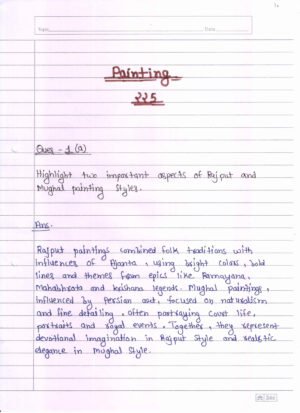 Painting
225
Ques - 1 (a)
Highlight two important aspects of Rajput and
Mughal painting styles.
Ans.
Rajput paintings combined folk traditions with
influences of Ajanta, using bright colors, bold
lines and themes from epics like Ramayana,
Mahabharata and krishana legends. Mughal paintings,
influenced by Persian art, focused on naturalism
and fine detailing, often portraying court life,
portraits and royal events. Together, they represent
devotional imagination in Rajput Style and realistic
elegance in Mughal Style.